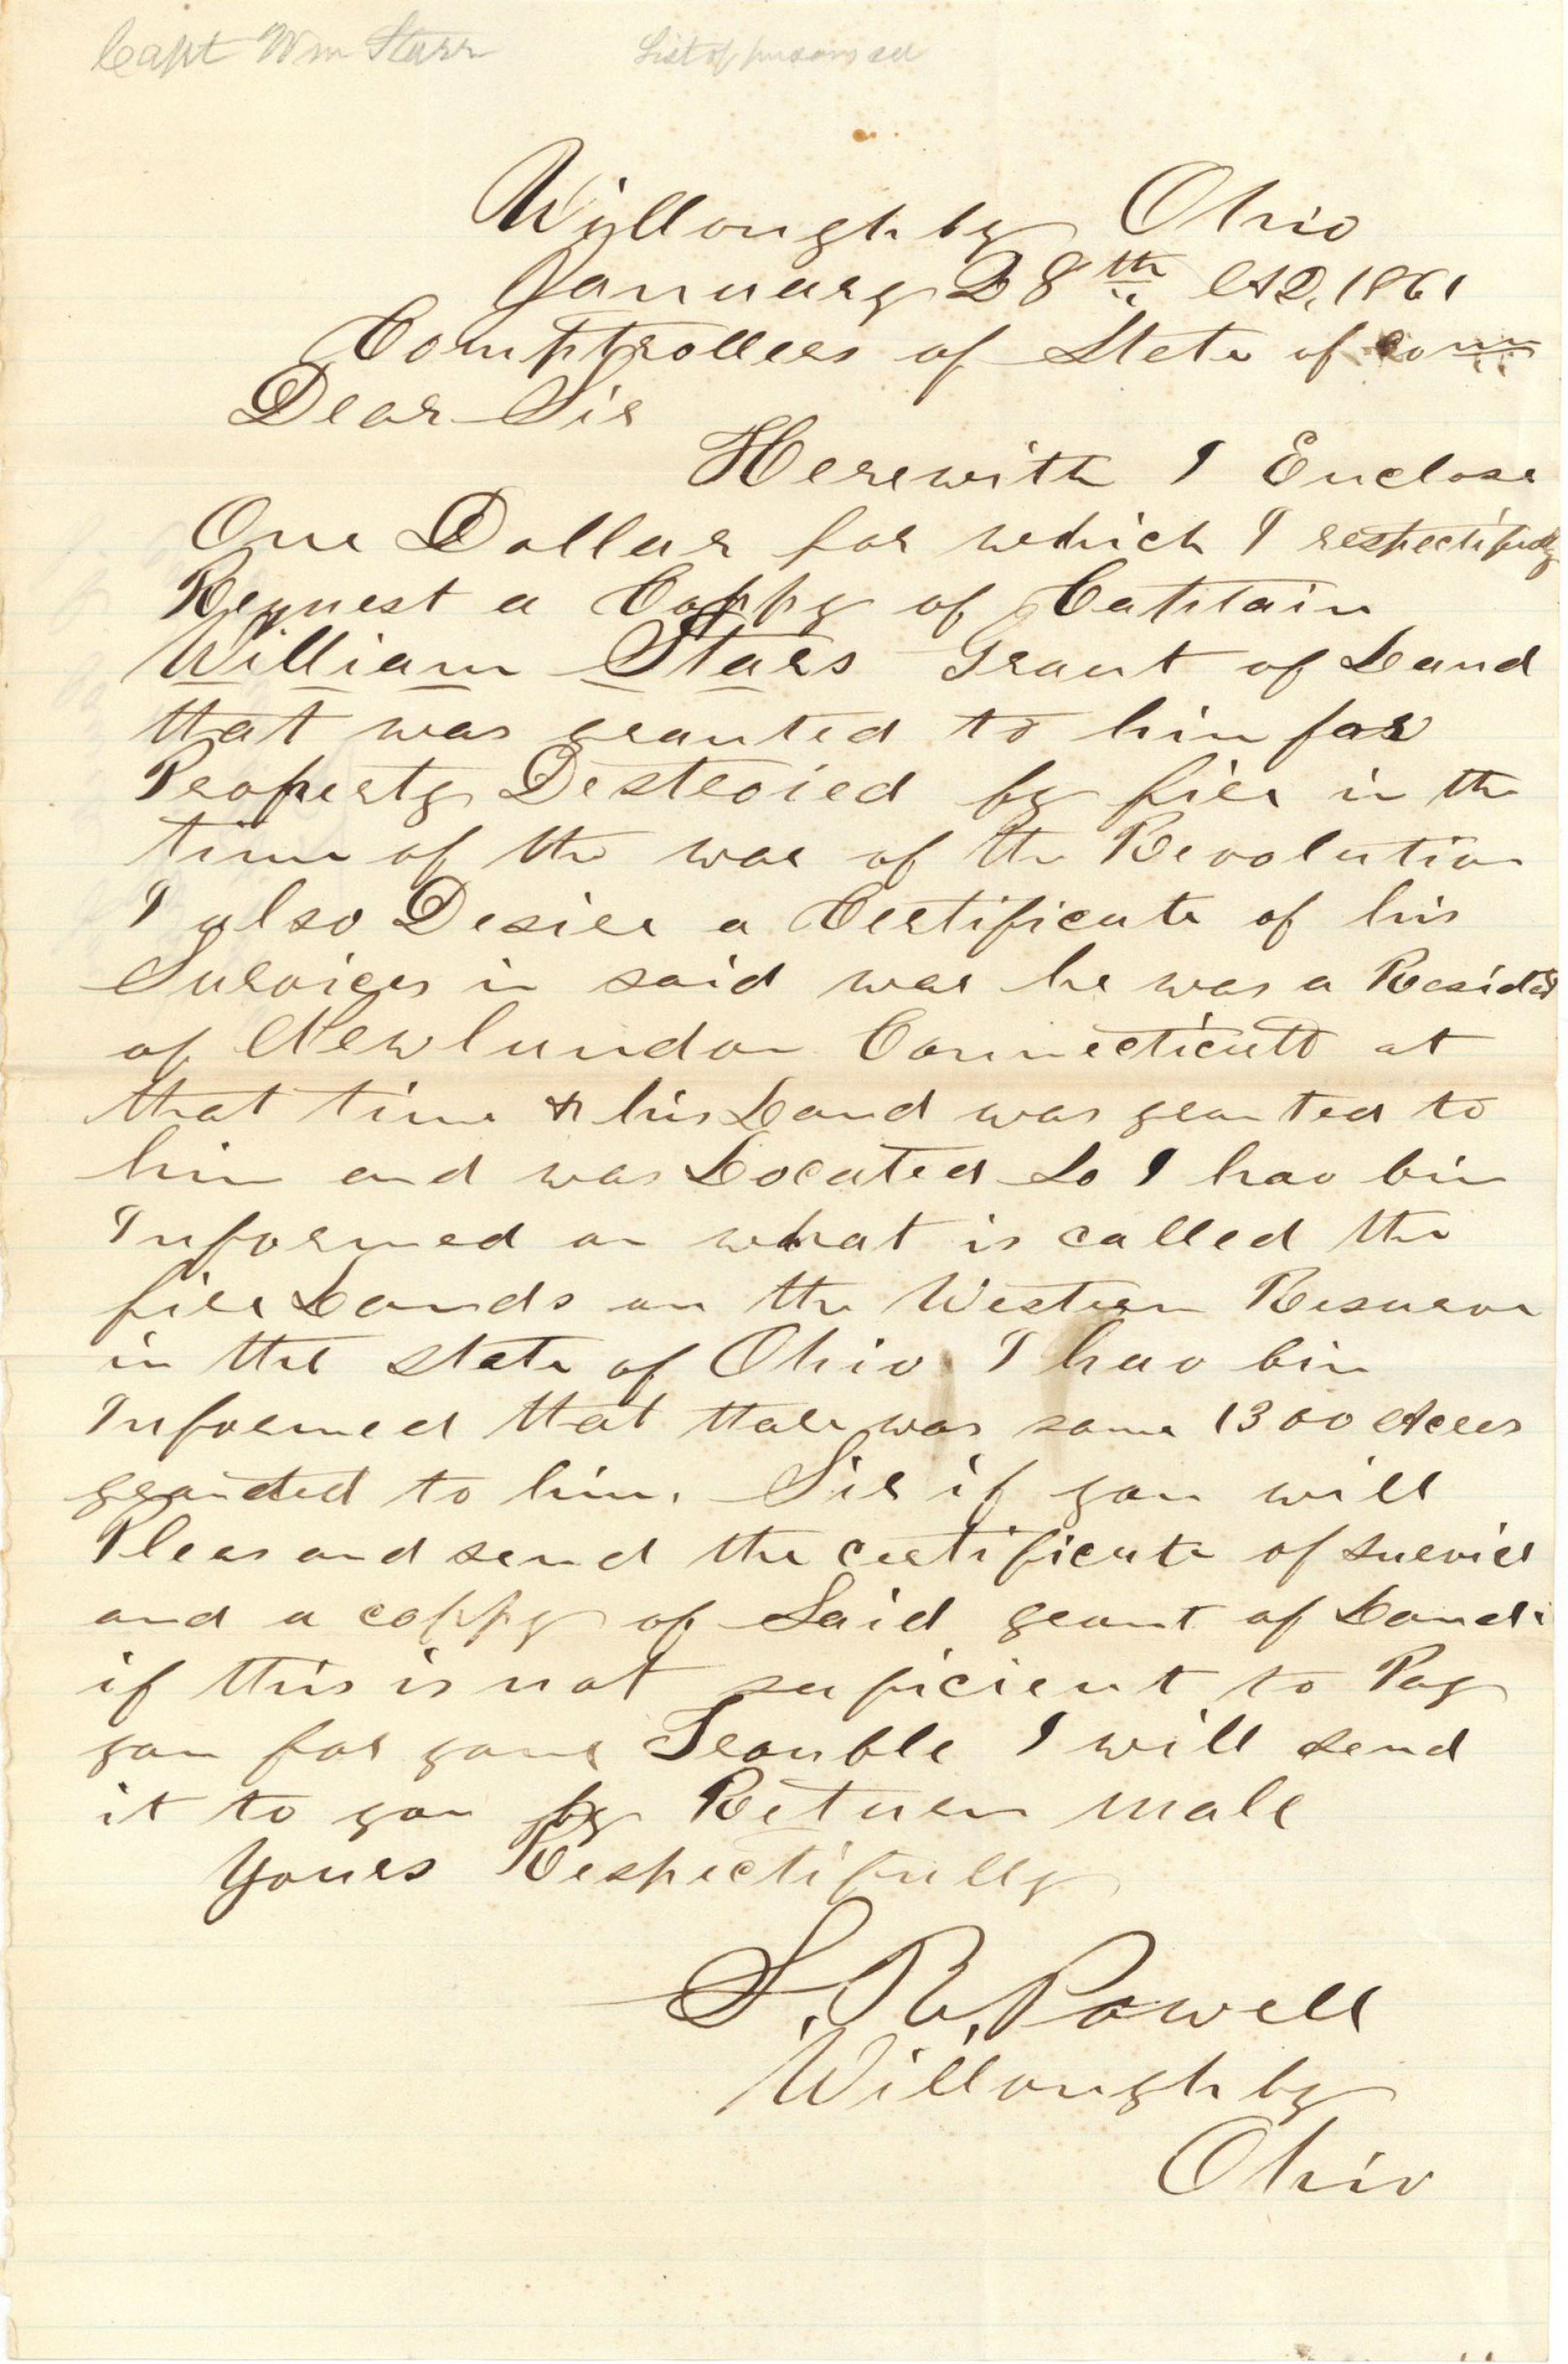 Capt Wm Starr
List of persons &c
Willoughby Ohio
January 28th AD, 1861
Comptrollers of State of Conn
Dear Sir
Herewith I Enclose
One Dollar for which I respectifully
Request a Coppy of Captain
William Stars Grant of Land
that was granted to him for
Property Destroied by fire in the
time of the war of the Revolution
I also Desire a Certificate of his
Survices in said war he was a Resident
of New lundon Connecticutt at
that time & his Land was granted to
him and was Located So I hav bin
Informed on what is called the
fire Lands on the Western Resurve
in the state of Ohio I hav bin
Informed that thare was some 1300 Acres
granted to him. Sir if you will
Pleas and send the certificate of survice
and a coppy of Said grant of Land.
if this is not suficient to Pay
you for your Trouble I will send
it to you by Return male
Yours Respectifully
S. R. Powell
Willoughby
Ohio